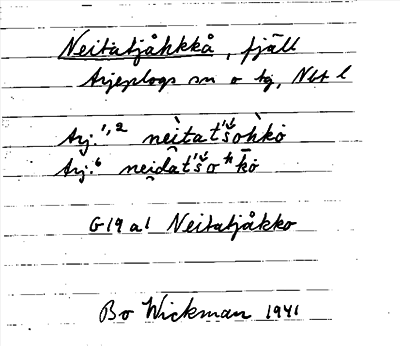 Neitatjåhkkå, fjäll
Arjeplogs sn o tg, Nbt l
Arj.1,2 nèi̯tatš́òh̄kȯ
Arj.6 nei̯datš́oʰk̄ȯ
G19a1 Neitatjåkko
Bo Wickman 1941